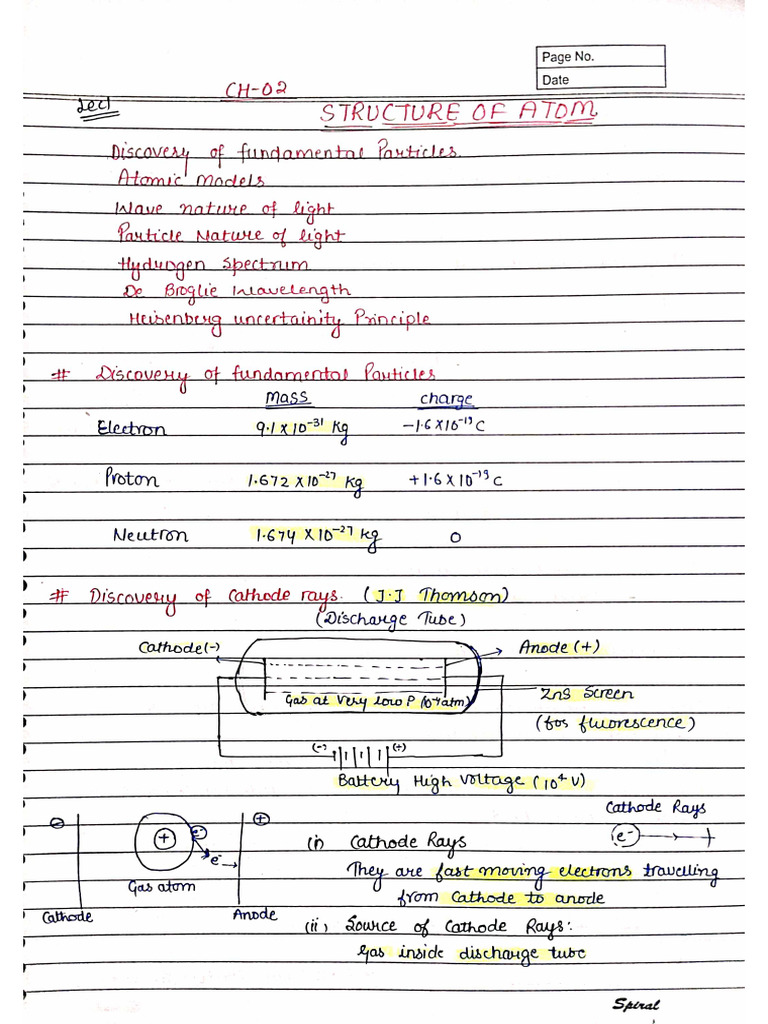 Page No.
Date
CH-02
Lec1
STRUCTURE OF ATOM
Discovery of fundamental Particles
Atomic Models
Wave nature of light
Particle Nature of light
Hydrogen Spectrum
De Broglie Wavelength
Heisenberg uncertainity Principle
# Discovery of fundamental Particles
Mass charge
Electron 9.1 X 10⁻³¹ Kg −1.6 X 10⁻¹⁹ C
Proton 1.672 X 10⁻²⁷ Kg +1.6 X 10⁻¹⁹ C
Neutron 1.674 X 10⁻²⁷ Kg 0
# Discovery of Cathode rays. (J.J Thomson)
(Discharge Tube)
Cathode(-) Anode (+)
Gas at Very low P (10⁻⁴ atm)
ZnS Screen
(for fluorescence)
(-) (+)
Battery High Voltage (10⁴ V)
Cathode Rays
e⁻
- + e⁻ e⁻ +
Gas atom
Cathode Anode
(i) Cathode Rays
They are fast moving electrons travelling
from Cathode to anode
(ii) Source of Cathode Rays:
Gas inside discharge tube
Spiral